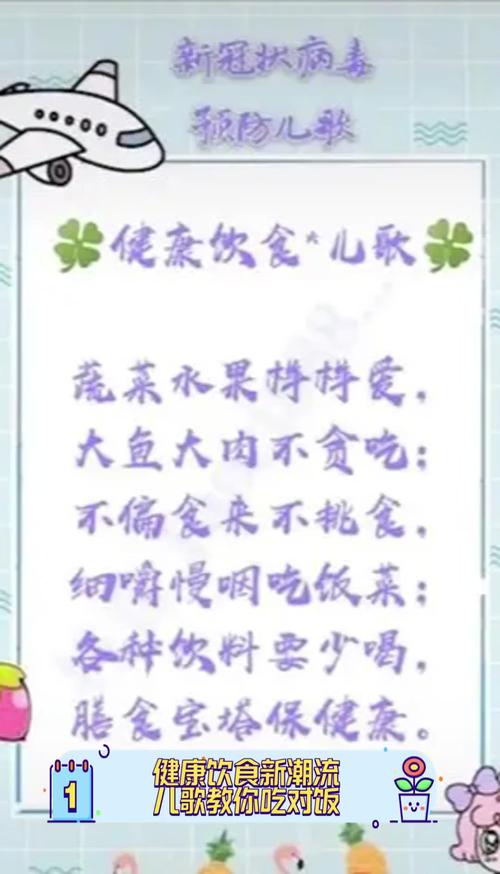 新冠状病毒
预防儿歌
健康饮食*儿歌
蔬菜水果样样爱，
大鱼大肉不贪吃；
不偏食来不挑食，
细嚼慢咽吃饭菜；
各种饮料要少喝，
膳食宝塔保健康。
1
健康饮食新潮流
儿歌教你吃对饭